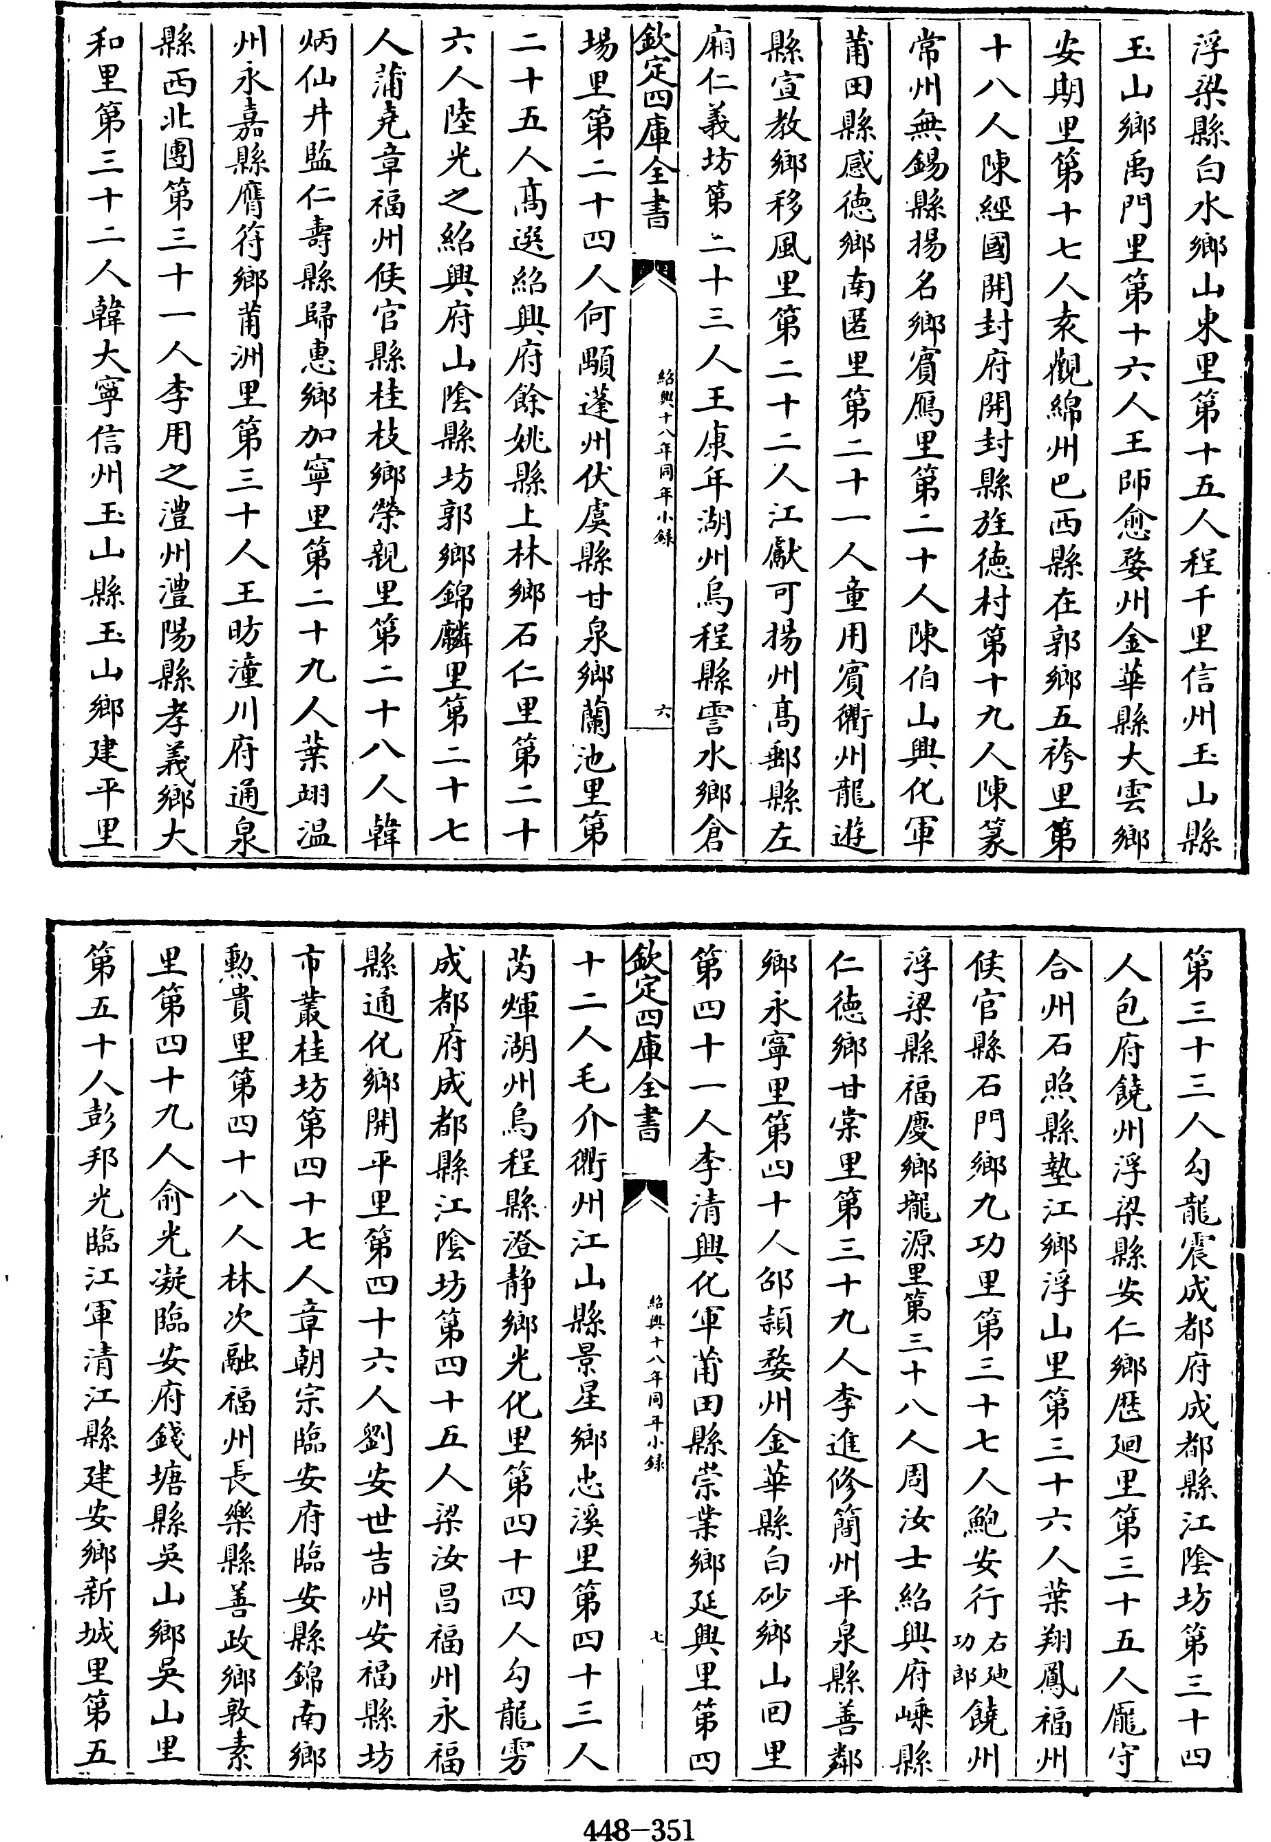 浮梁縣白水鄉山東里第十五人程千里信州玉山縣
玉山鄉禹門里第十六人王師愈婺州金華縣大雲鄉
安期里第十七人袁觀綿州巴西縣在郭鄉五袴里第
十八人陳經國開封府開封縣旌德村第十九人陳篆
常州無錫縣揚名鄉賓鴈里第二十人陳伯山興化軍
莆田縣感德鄉南匿里第二十一人童用賓衢州龍遊
縣宣教鄉移風里第二十二人江獻可揚州高郵縣左
廂仁義坊第二十三人王康年湖州烏程縣霅水鄉倉
欽定四庫全書
紹興十八年同年小錄
六
場里第二十四人何顒蓬州伏虞縣甘泉鄉蘭池里第
二十五人高選紹興府餘姚縣上林鄉石仁里第二十
六人陸光之紹興府山陰縣坊郭鄉錦麟里第二十七
人蒲堯章福州侯官縣桂枝鄉榮親里第二十八人韓
炳仙井監仁壽縣歸惠鄉加寧里第二十九人葉翊温
州永嘉縣膺符鄉莆洲里第三十人王昉潼川府通泉
縣西北團第三十一人李用之澧州澧陽縣孝義鄉大
和里第三十二人韓大寧信州玉山縣玉山鄉建平里
第三十三人勾龍震成都府成都縣江陰坊第三十四
人包府饒州浮梁縣安仁鄉歴廻里第三十五人龎守
合州石照縣墊江鄉浮山里第三十六人葉翔鳳福州
侯官縣石門鄉九功里第三十七人鮑安行右廸功郎饒州
浮梁縣福慶鄉壠源里第三十八人周汝士紹興府嵊縣
仁德鄉甘棠里第三十九人李進修簡州平泉縣善鄰
鄉永寧里第四十人邵頴婺州金華縣白砂鄉山回里
第四十一人李清興化軍莆田縣崇業鄉延興里第四
欽定四庫全書
紹興十八年同年小錄
七
十二人毛介衢州江山縣景星鄉忠溪里第四十三人
芮煇湖州烏程縣澄靜鄉光化里第四十四人勾龍雱
成都府成都縣江陰坊第四十五人梁汝昌福州永福
縣通化鄉開平里第四十六人劉安世吉州安福縣坊
市叢桂坊第四十七人章朝宗臨安府臨安縣錦南鄉
勲貴里第四十八人林次融福州長樂縣善政鄉敦素
里第四十九人俞光凝臨安府錢塘縣吳山鄉吳山里
第五十人彭邦光臨江軍清江縣建安鄉新城里第五
448-351